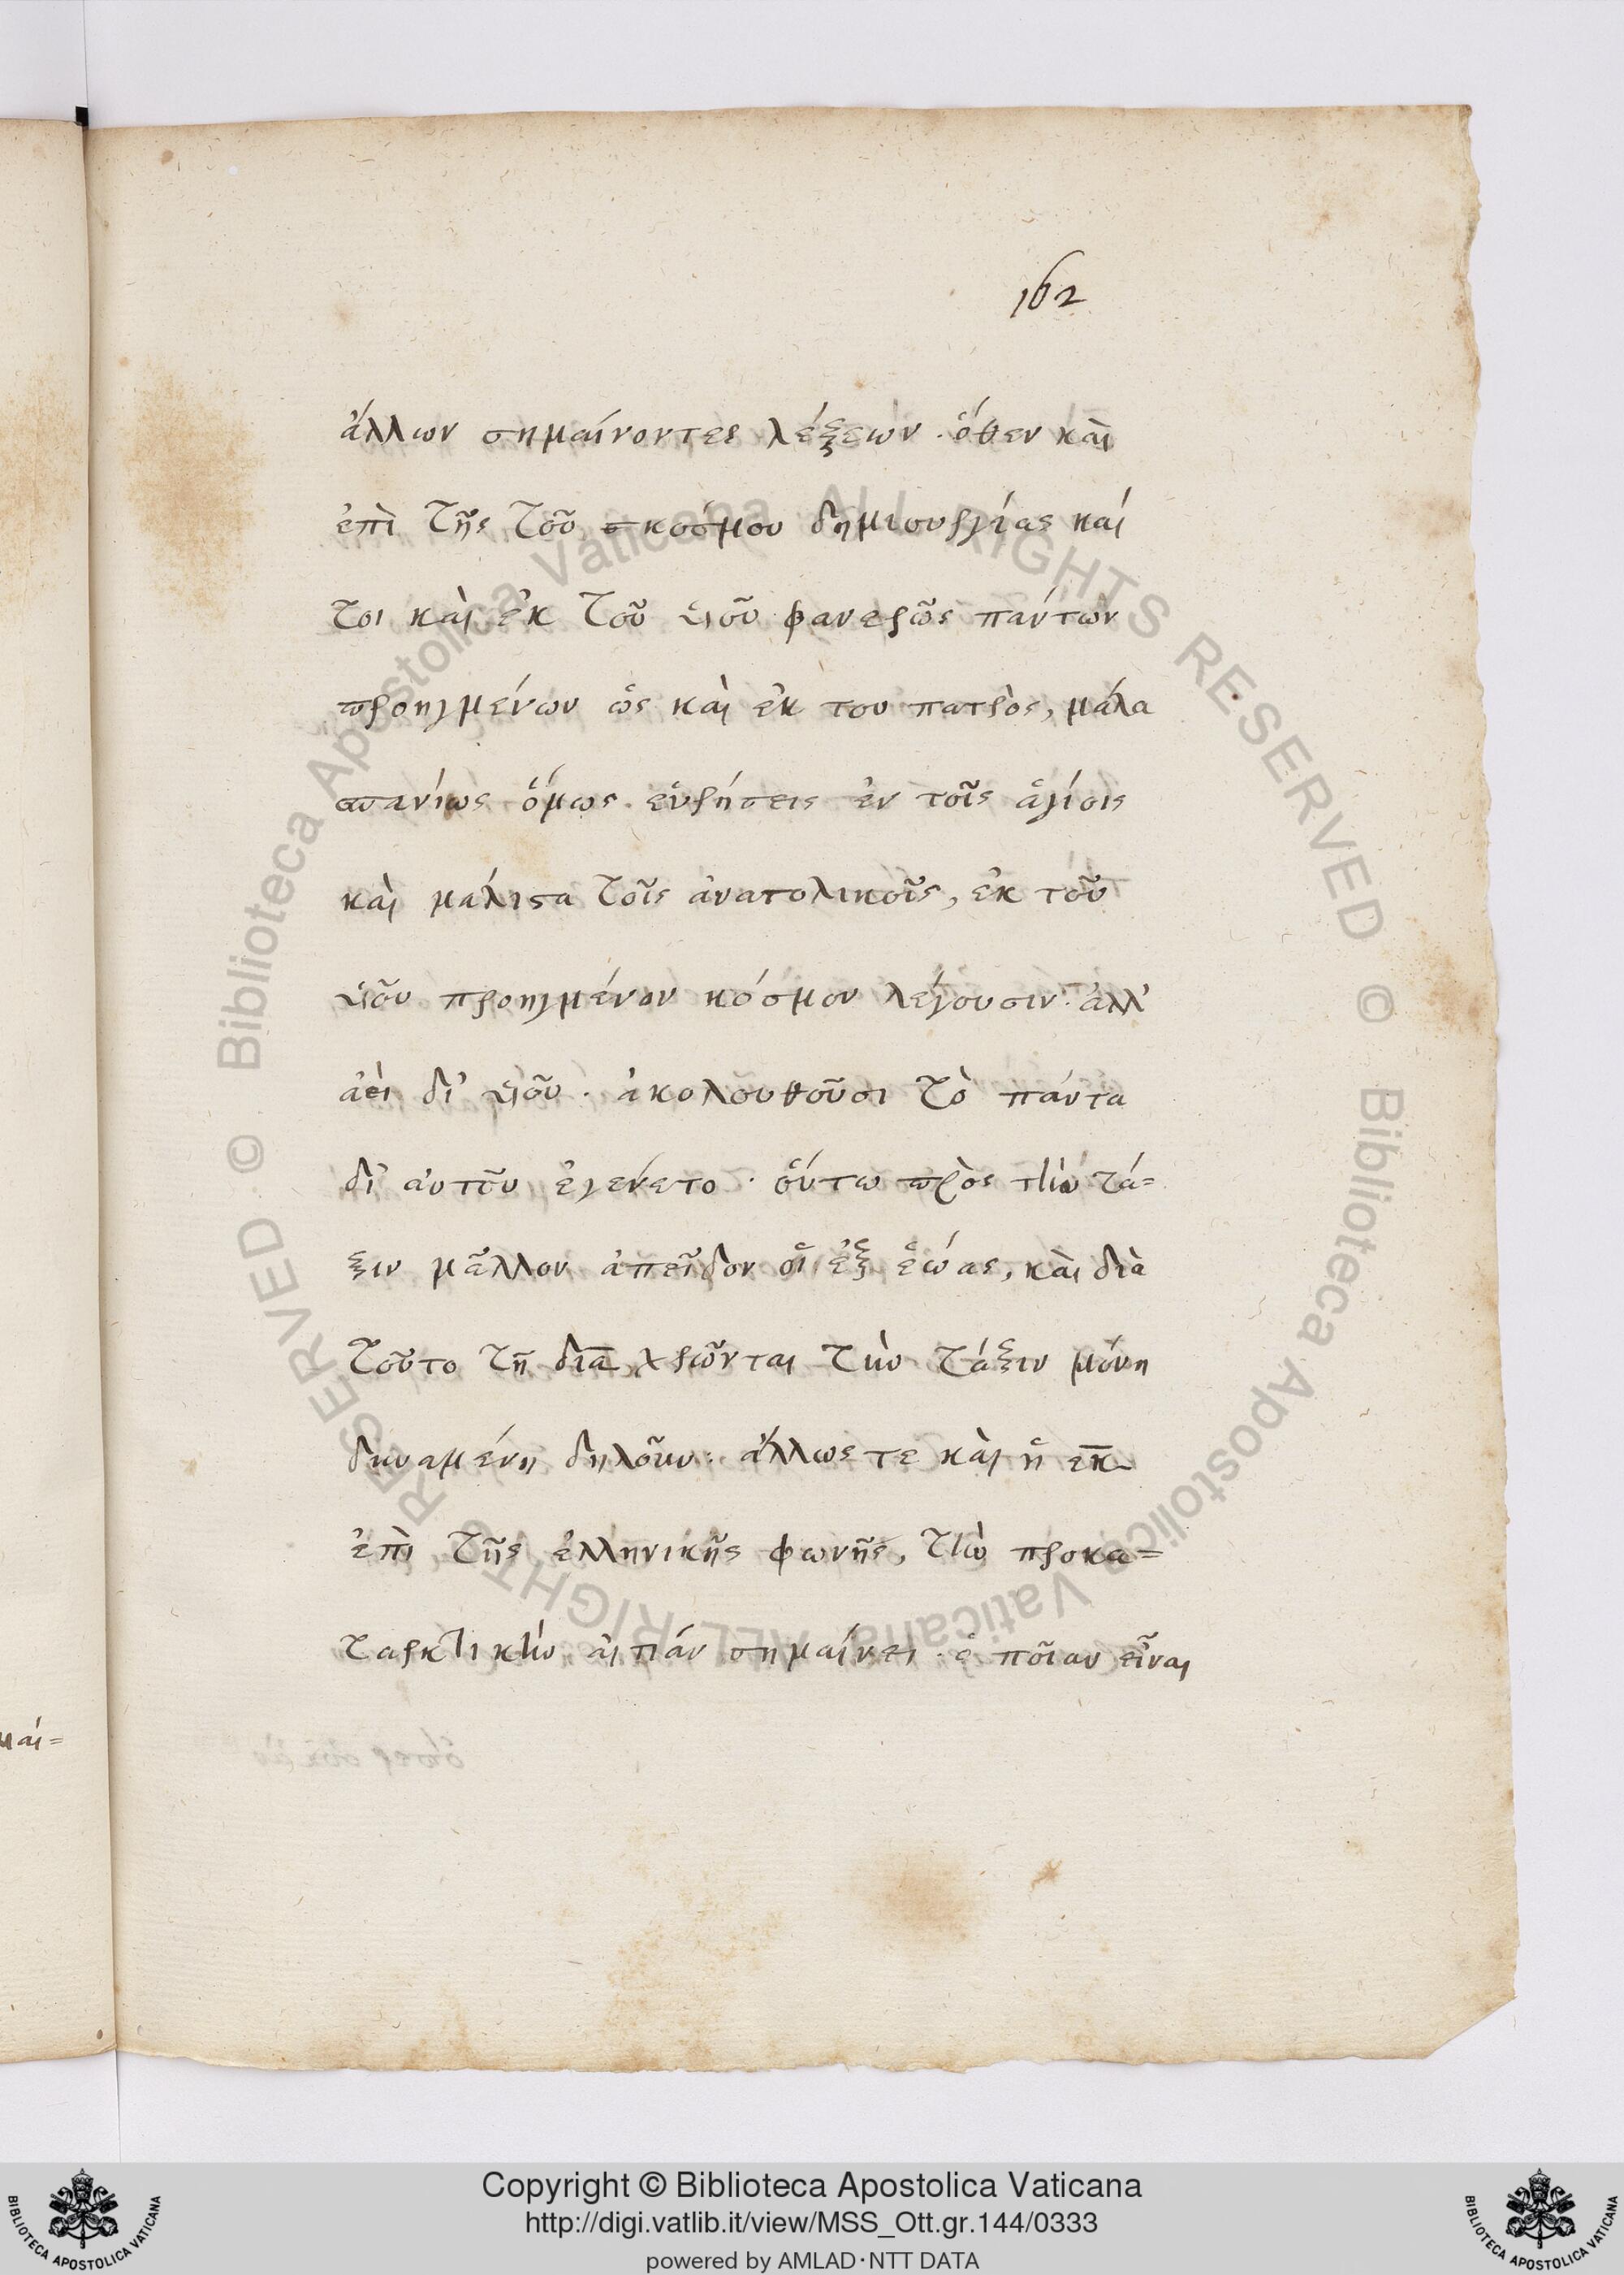 162
ἄλλων σημαίνοντες λέξεων. ὅθεν καὶ
ἐπὶ τῆς τοῦ κσόμου δημιουργίας καί
τοι καὶ ἐκ τοῦ υἱοῦ φανερῶς παντων
προηγμένων ὡς καὶ ἐκ του πατρὸς, μάλα
σπανίως ὅμως εὑρήσεις ἐν τοῖς ἁγίοις
καὶ μάλιστα τοῖς ἀνατολικοῖς, ἐκ τοῦ
υἱοῦ προηγμένον κόσμον λέγουσιν· ἀλλ'
ἀεὶ δι' υἱοῦ. ἀκολουθοῦσι τὸ πάντα
δι' αὐτοῦ ἐγένετο. οὕτω πρὸς τὴν τά=
ξιν μᾶλλον ἀπεῖδον οἱ ἐξ ἑώας, καὶ διὰ
τοῦτο τῇ δια χρῶνται τὴν τάξιν μόνῃ
δυναμένῃ δηλοῦν. ἄλλως τε καὶ ἡ εκ
ἐπὶ τῆς ἑλληνικῆς φωνῆς, τὴν προκα=
ταρκτικὴν αἰτίαν σημαίνει. ὁποῖαν εἶναι
μαί=
Copyright © Biblioteca Apostolica Vaticana
http://digi.vatlib.it/view/MSS_Ott.gr.144/0333
powered by AMLAD·NTT DATA
BIBLIOTECA APOSTOLICA VATICANA
BIBLIOTECA APOSTOLICA VATICANA
© Biblioteca Apostolica Vaticana ALL RIGHTS RESERVED © Biblioteca Apostolica Vaticana ALL RIGHTS RESERVED